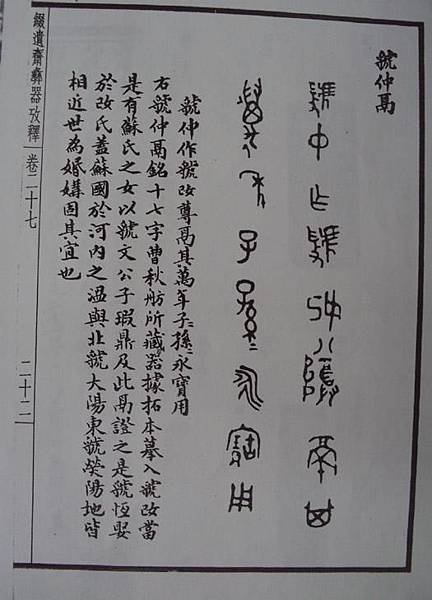 虢仲鬲
虢中乍虢改尊鬲其
萬年子孫永寶用
虢仲作虢改尊鬲其萬年子〻孫〻永寶用
右虢仲鬲銘十七字曹秋舫所藏器據拓本摹入虢改當
是有蘇氏之女以虢文公子瑕鼎及此鬲證之是虢恆娶
於改氏蓋蘇國於河內之溫與北虢大陽東虢滎陽地皆
相近世為婚媾固其宜也
綴遺齋彝器攷釋 卷二十七 二十二